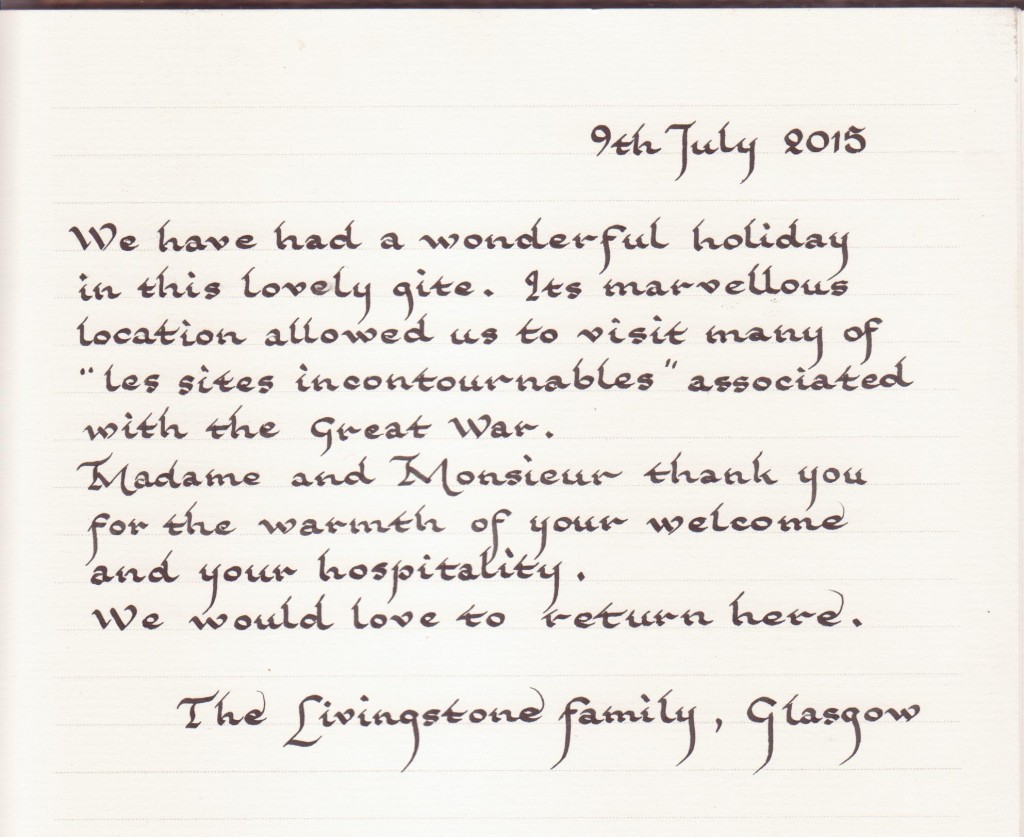 9th July 2015
We have had a wonderful holiday
in this lovely gite. Its marvellous
location allowed us to visit many of
"les sites incontournables" associated
with the Great War.
Madame and Monsieur thank you
for the warmth of your welcome
and your hospitality.
We would love to return here.
The Livingstone family, Glasgow